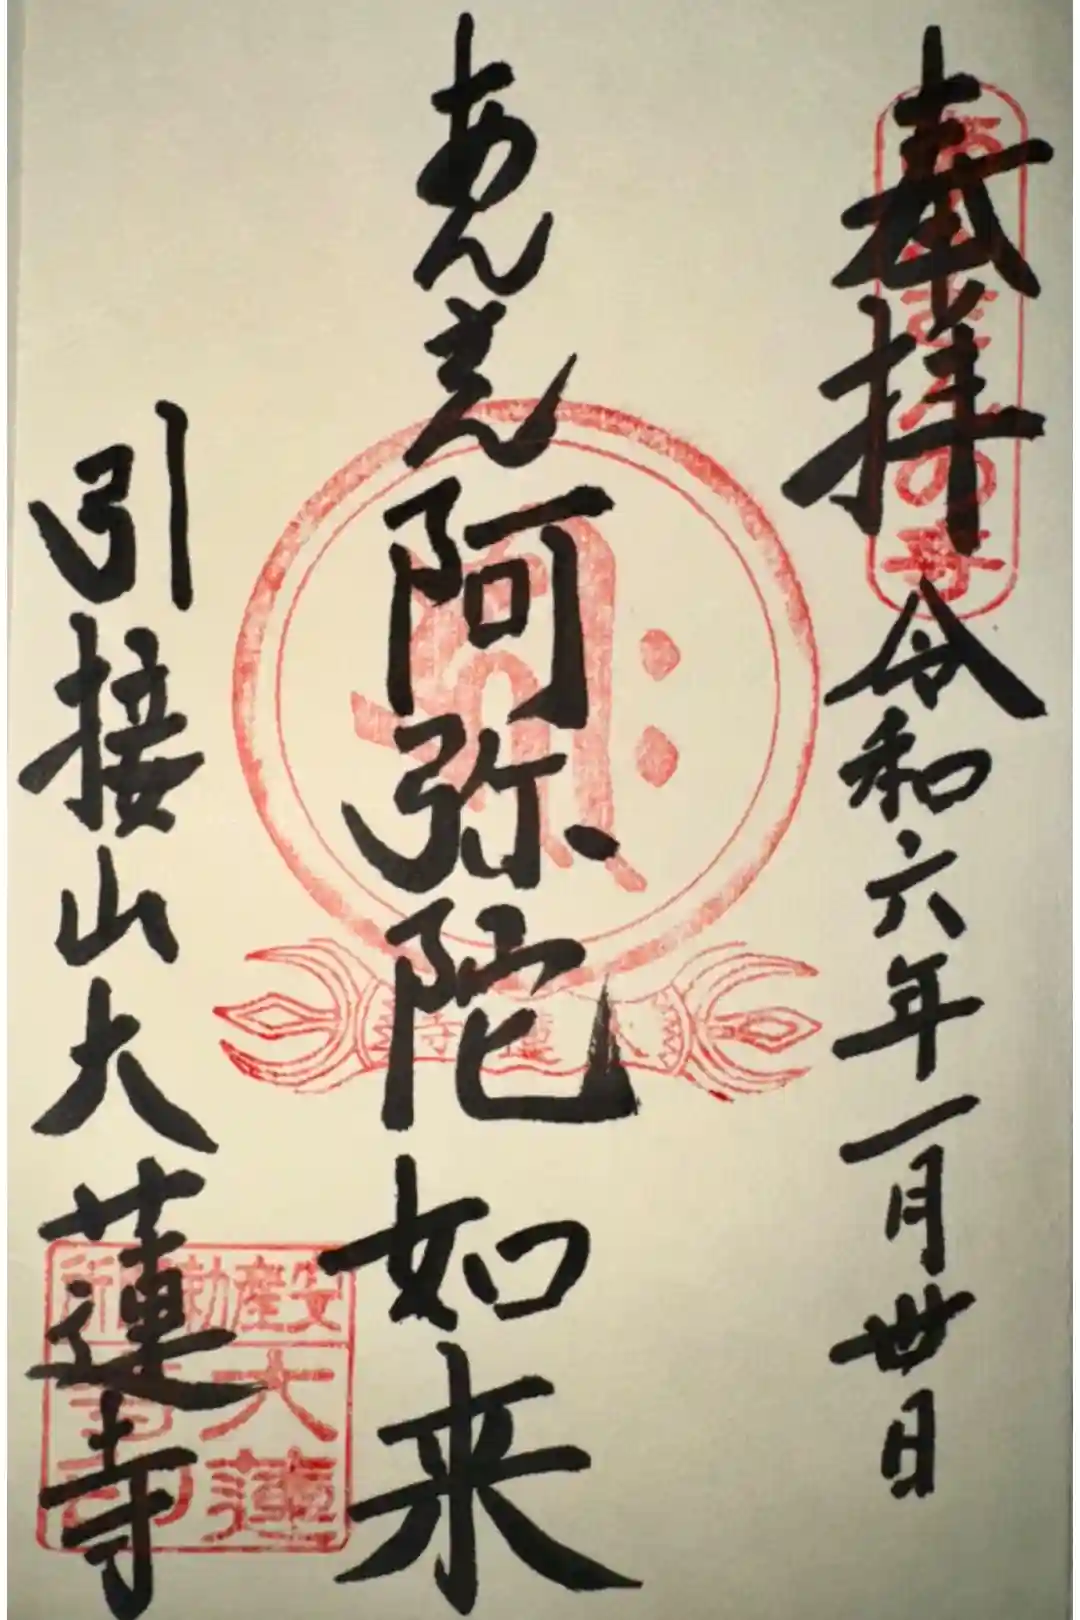 奉拝 令和六年一月卅日
あんざん阿弥陀如来
引接山大蓮寺
大蓮寺
安産勅願所
大蓮
寺印